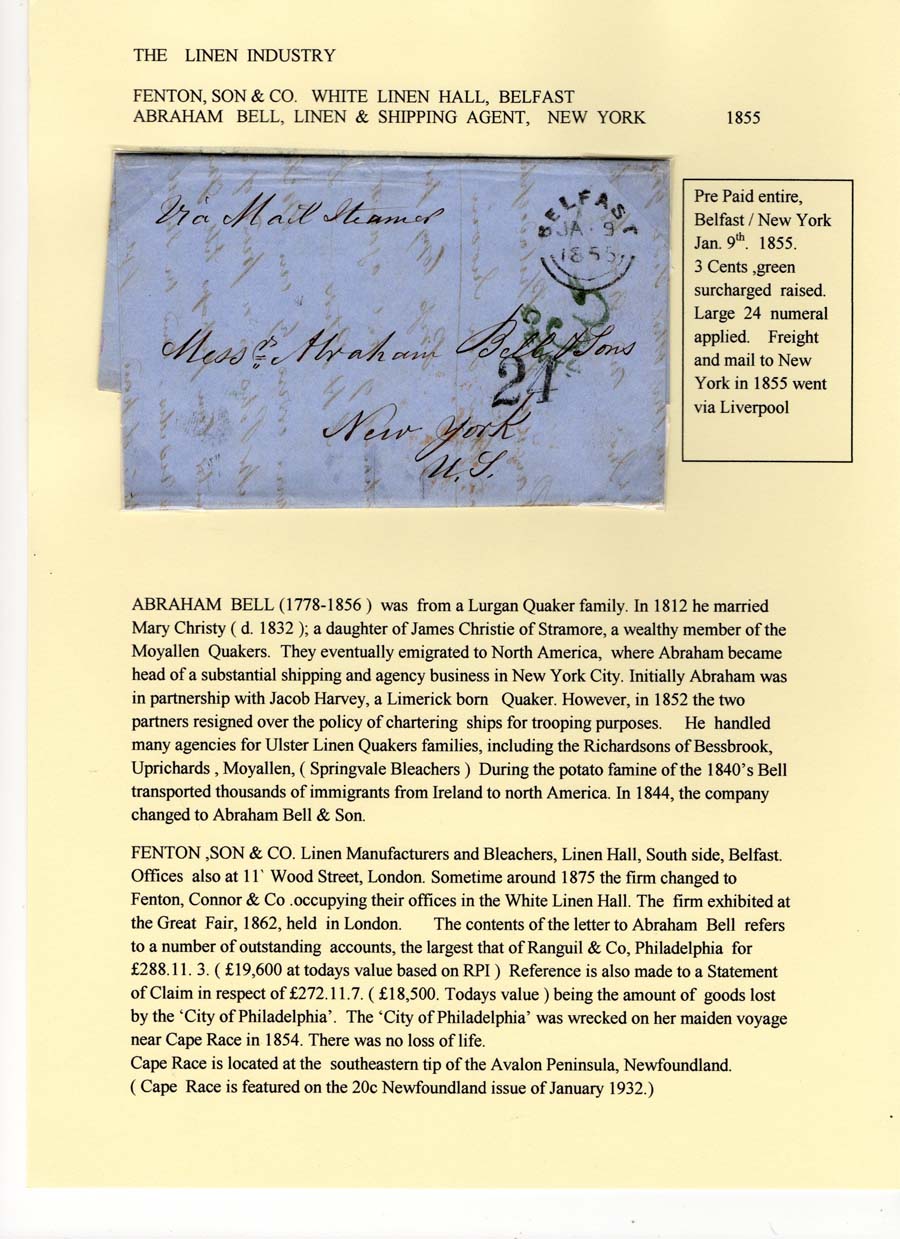 THE LINEN INDUSTRY
FENTON, SON & CO. WHITE LINEN HALL, BELFAST
ABRAHAM BELL, LINEN & SHIPPING AGENT, NEW YORK 1855
Via Mail Steamer
BELFAST
JA 9
1855
Messrs. Abraham Bell & Sons
24
New York
U.S.
Pre Paid entire,
Belfast / New York
Jan. 9th. 1855.
3 Cents ,green
surcharged raised.
Large 24 numeral
applied. Freight
and mail to New
York in 1855 went
via Liverpool
ABRAHAM BELL (1778-1856 ) was from a Lurgan Quaker family. In 1812 he married
Mary Christy ( d. 1832 ); a daughter of James Christie of Stramore, a wealthy member of the
Moyallen Quakers. They eventually emigrated to North America, where Abraham became
head of a substantial shipping and agency business in New York City. Initially Abraham was
in partnership with Jacob Harvey, a Limerick born Quaker. However, in 1852 the two
partners resigned over the policy of chartering ships for trooping purposes. He handled
many agencies for Ulster Linen Quakers families, including the Richardsons of Bessbrook,
Uprichards , Moyallen, ( Springvale Bleachers ) During the potato famine of the 1840's Bell
transported thousands of immigrants from Ireland to north America. In 1844, the company
changed to Abraham Bell & Son.
FENTON ,SON & CO. Linen Manufacturers and Bleachers, Linen Hall, South side, Belfast.
Offices also at 11` Wood Street, London. Sometime around 1875 the firm changed to
Fenton, Connor & Co .occupying their offices in the White Linen Hall. The firm exhibited at
the Great Fair, 1862, held in London. The contents of the letter to Abraham Bell refers
to a number of outstanding accounts, the largest that of Ranguil & Co, Philadelphia for
£288.11. 3. ( £19,600 at todays value based on RPI ) Reference is also made to a Statement
of Claim in respect of £272.11.7. ( £18,500. Todays value ) being the amount of goods lost
by the 'City of Philadelphia'. The 'City of Philadelphia' was wrecked on her maiden voyage
near Cape Race in 1854. There was no loss of life.
Cape Race is located at the southeastern tip of the Avalon Peninsula, Newfoundland.
( Cape Race is featured on the 20c Newfoundland issue of January 1932.)